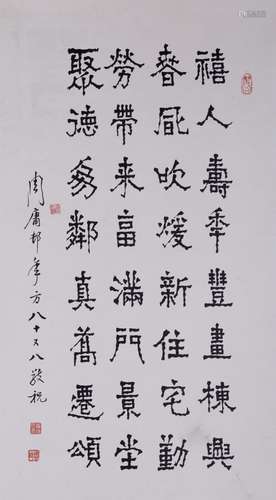 禧人壽年豐畫棟興
春風吹煖新住宅勤
勞帶来富滿門景堂
聚德鄰真喬遷頌
周庸邨年方八十又八敬祝